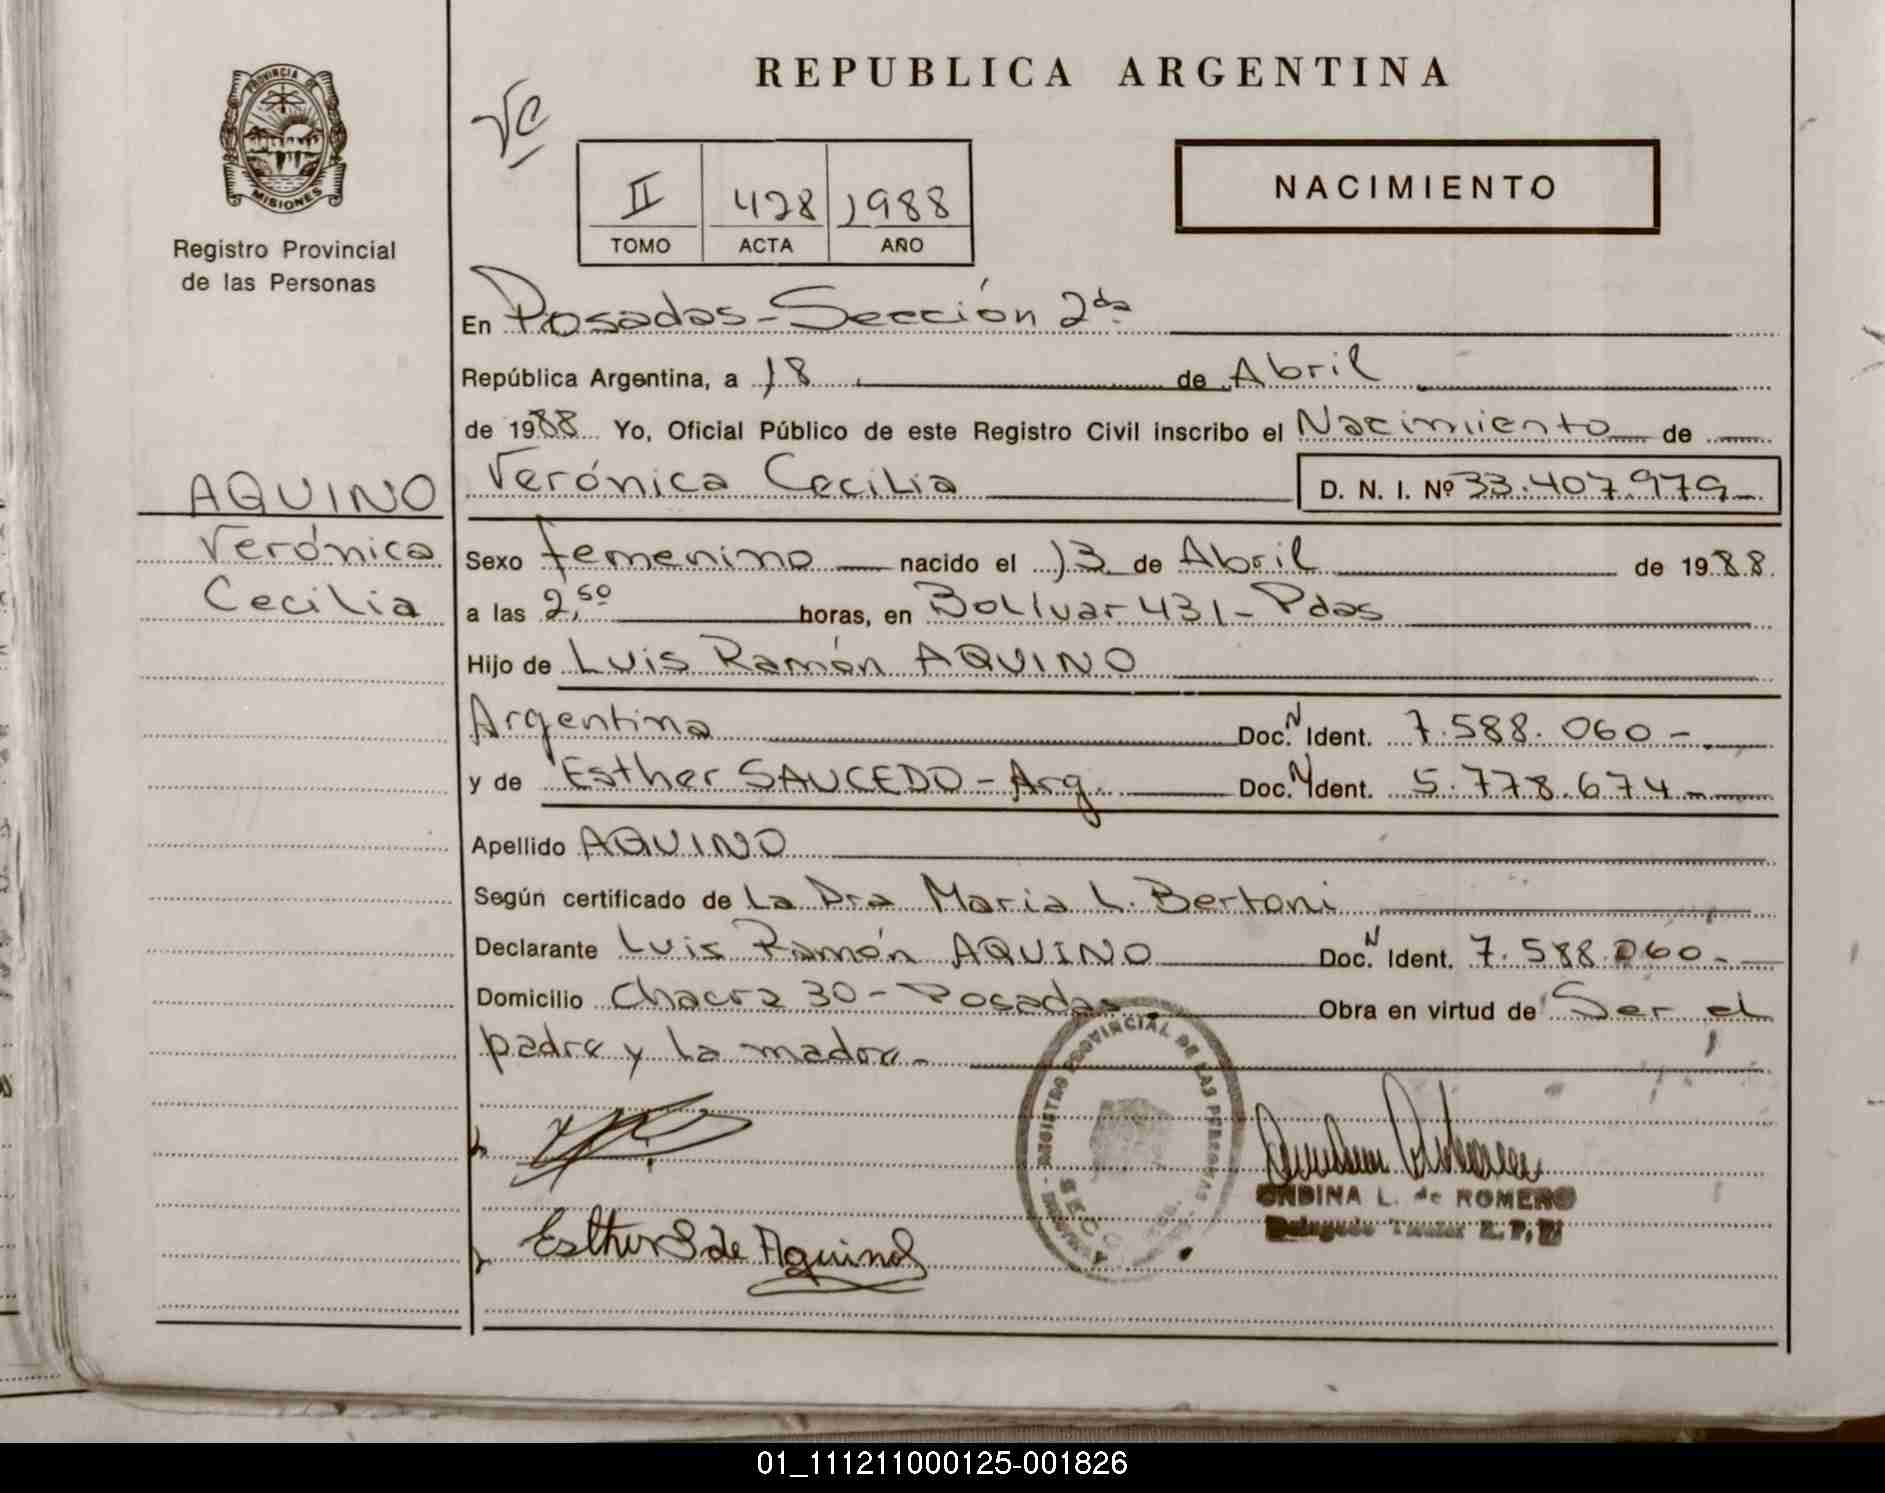 REPUBLICA ARGENTINA
PROVINCIA DE
MISIONES
Registro Provincial
de las Personas
II 428 1988
TOMO ACTA AÑO
NACIMIENTO
En Posadas - Sección 2da
República Argentina, a 18 de Abril
de 1988 Yo, Oficial Público de este Registro Civil inscribo el Nacimiento de
AQUINO
Verónica
Cecilia
Verónica Cecilia D. N. I. Nº 33.407.979
Sexo femenino nacido el 13 de Abril de 1988.
a las 2,50 horas, en Bolívar 431 - Pdas
Hijo de Luis Ramón AQUINO
Argentina Doc. N Ident. 7.588.060 -
y de Esther SAUCEDO - Arg. Doc. N Ident. 5.778.674 -
Apellido AQUINO
Según certificado de La Dra Maria L. Bertoni
Declarante Luis Ramón AQUINO Doc. N Ident. 7.588.060 -
Domicilio Chacra 30 - Posadas Obra en virtud de Ser el
padre y la madre. -
REGISTRO PROVINCIAL DE LAS PERSONAS
Esther S de Aquino
ONDINA L. de ROMERO
Delegado Titular R. P. P.
01_111211000125-001826